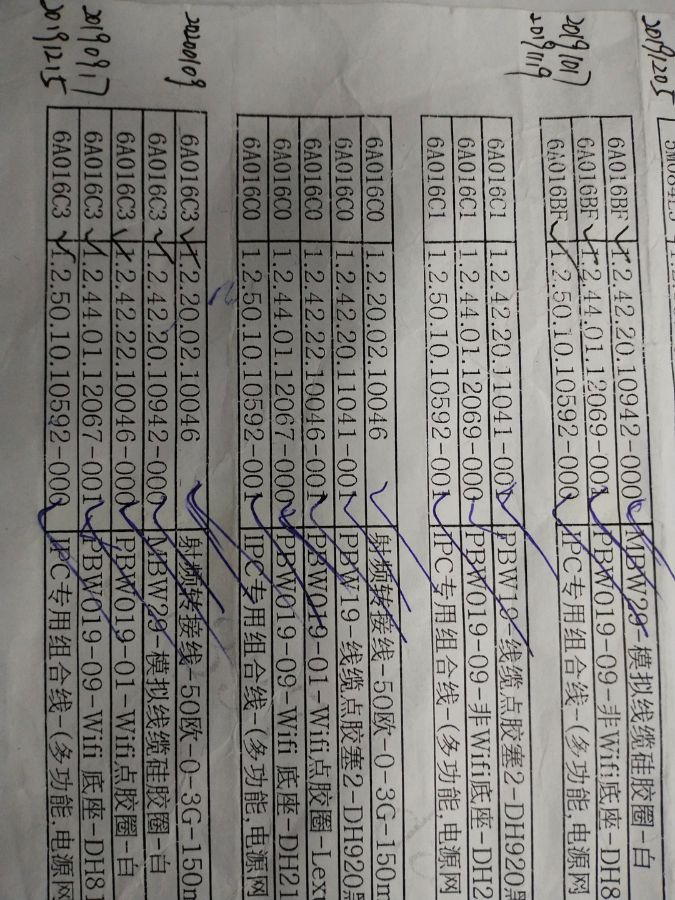 20191205
6A016BF 1.2.42.20.10942-000 MBW29-模拟线缆硅胶圈-白
20191017 6A016BF 1.2.44.01.12069-001 PBW019-09-非Wifi底座-DH8
20191119 6A016BF 1.2.50.10.10592-000 IPC专用组合线-(多功能,电源网
6A016C1 1.2.42.20.11041-001 PBW19-线缆点胶塞2-DH920黑
6A016C1 1.2.44.01.12069-000 PBW019-09-非Wifi底座-DH2
6A016C1 1.2.50.10.10592-001 IPC专用组合线-(多功能,电源网
6A016C0 1.2.20.02.10046 射频转接线-50欧-0-3G-150m
6A016C0 1.2.42.20.11041-001 PBW19-线缆点胶塞2-DH920黑
6A016C0 1.2.42.22.10046-001 PBW019-01-Wifi点胶圈-Lexu
6A016C0 1.2.44.01.12067-000 PBW019-09-Wifi 底座-DH21
6A016C0 1.2.50.10.10592-001 IPC专用组合线-(多功能,电源网
20200109 6A016C3 1.2.20.02.10046 射频转接线-50欧-0-3G-150m
6A016C3 1.2.42.20.10942-000 MBW29-模拟线缆硅胶圈-白
6A016C3 1.2.42.22.10046-000 PBW019-01-Wifi点胶圈-白
20190917 6A016C3 1.2.44.01.12067-001 PBW019-09-Wifi 底座-DH81
20191215 6A016C3 1.2.50.10.10592-000 IPC专用组合线-(多功能,电源网